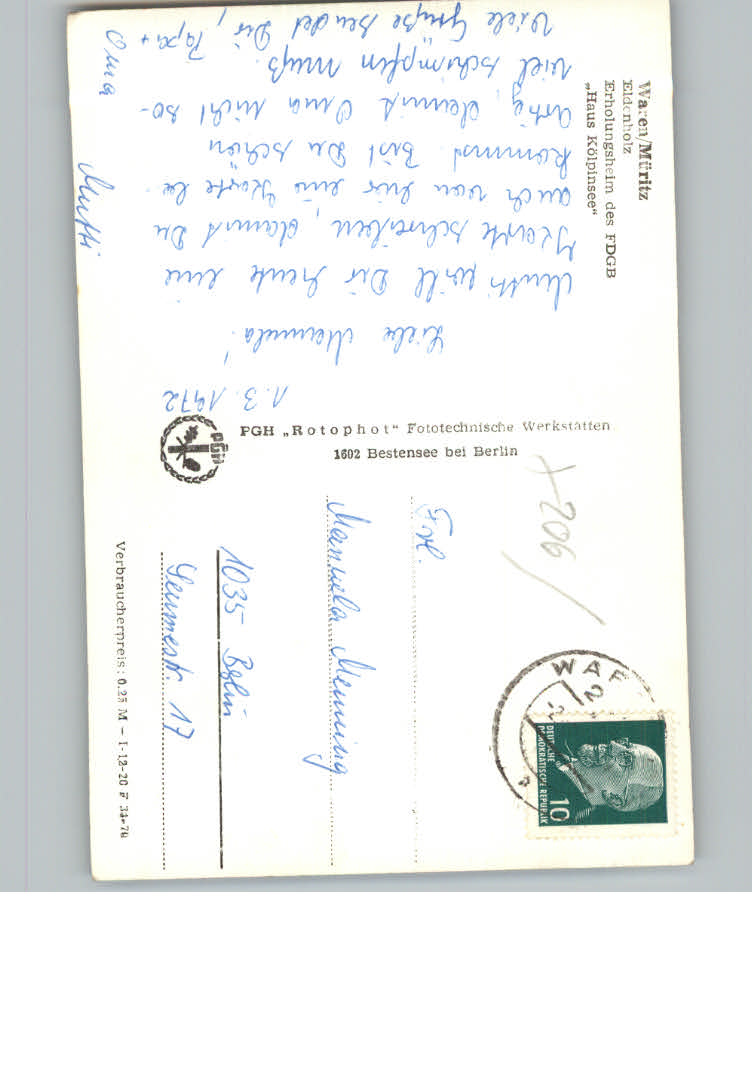 Waren/Müritz
Eldenholz
Erholungsheim des FDGB
„Haus Kölpinsee“
1.3.1972
Liebe Manuela!
Mutti will Dir heute eine
Karte schreiben, damit Du
auch von mir eine Karte be-
kommst. Bist Du schön
artig, damit Oma nicht so-
viel schimpfen muß.
Viele Grüße sendet Dir, Papa +
Oma
Mutti
PGH „Rotophot“ Fototechnische Werkstätten
1602 Bestensee bei Berlin
PGH
206
Frl.
Manuela Menning
1035 Berlin
Seumestr. 17
Verbraucherpreis: 0,25 M – I-12-20 F 34-70
WAR
DEUTSCHE
DEMOKRATISCHE REPUBLIK
10